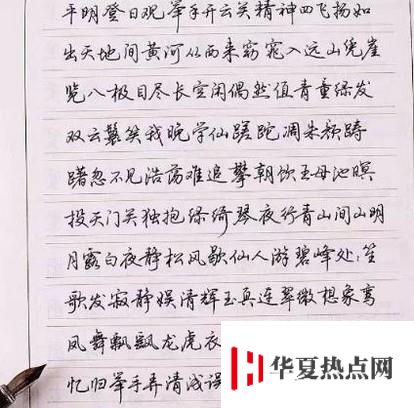 平明登日观举手开云关精神四飞扬如
出天地间黄河从西来窈窕入远山凭崖
览八极目尽长空闲偶然值青童绿发
双云鬟笑我晚学仙蹉跎凋朱颜踌
躇忽不见浩荡难追攀朝饮王母池暝
投天门关独抱绿绮琴夜行青山间山明
月露白夜静松风歇仙人游碧峰处处笙
歌发寂静娱清辉玉真连翠微想象鸾
凤舞飘飘龙虎衣
忆归举手弄清浅误
华夏热点网